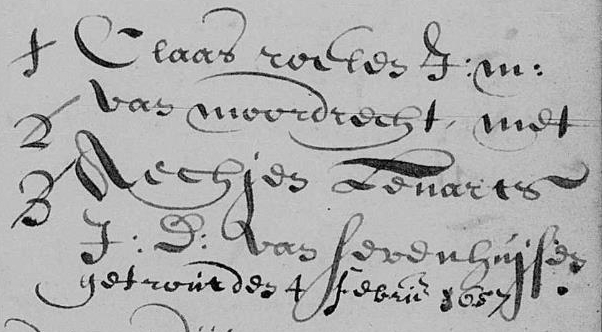 1 Claas roelen J: m:
2 van moordrecht, met
3 Aechjen Lenarts
J: D: van sevenhuijsen
getrout den 4 febru: 1657